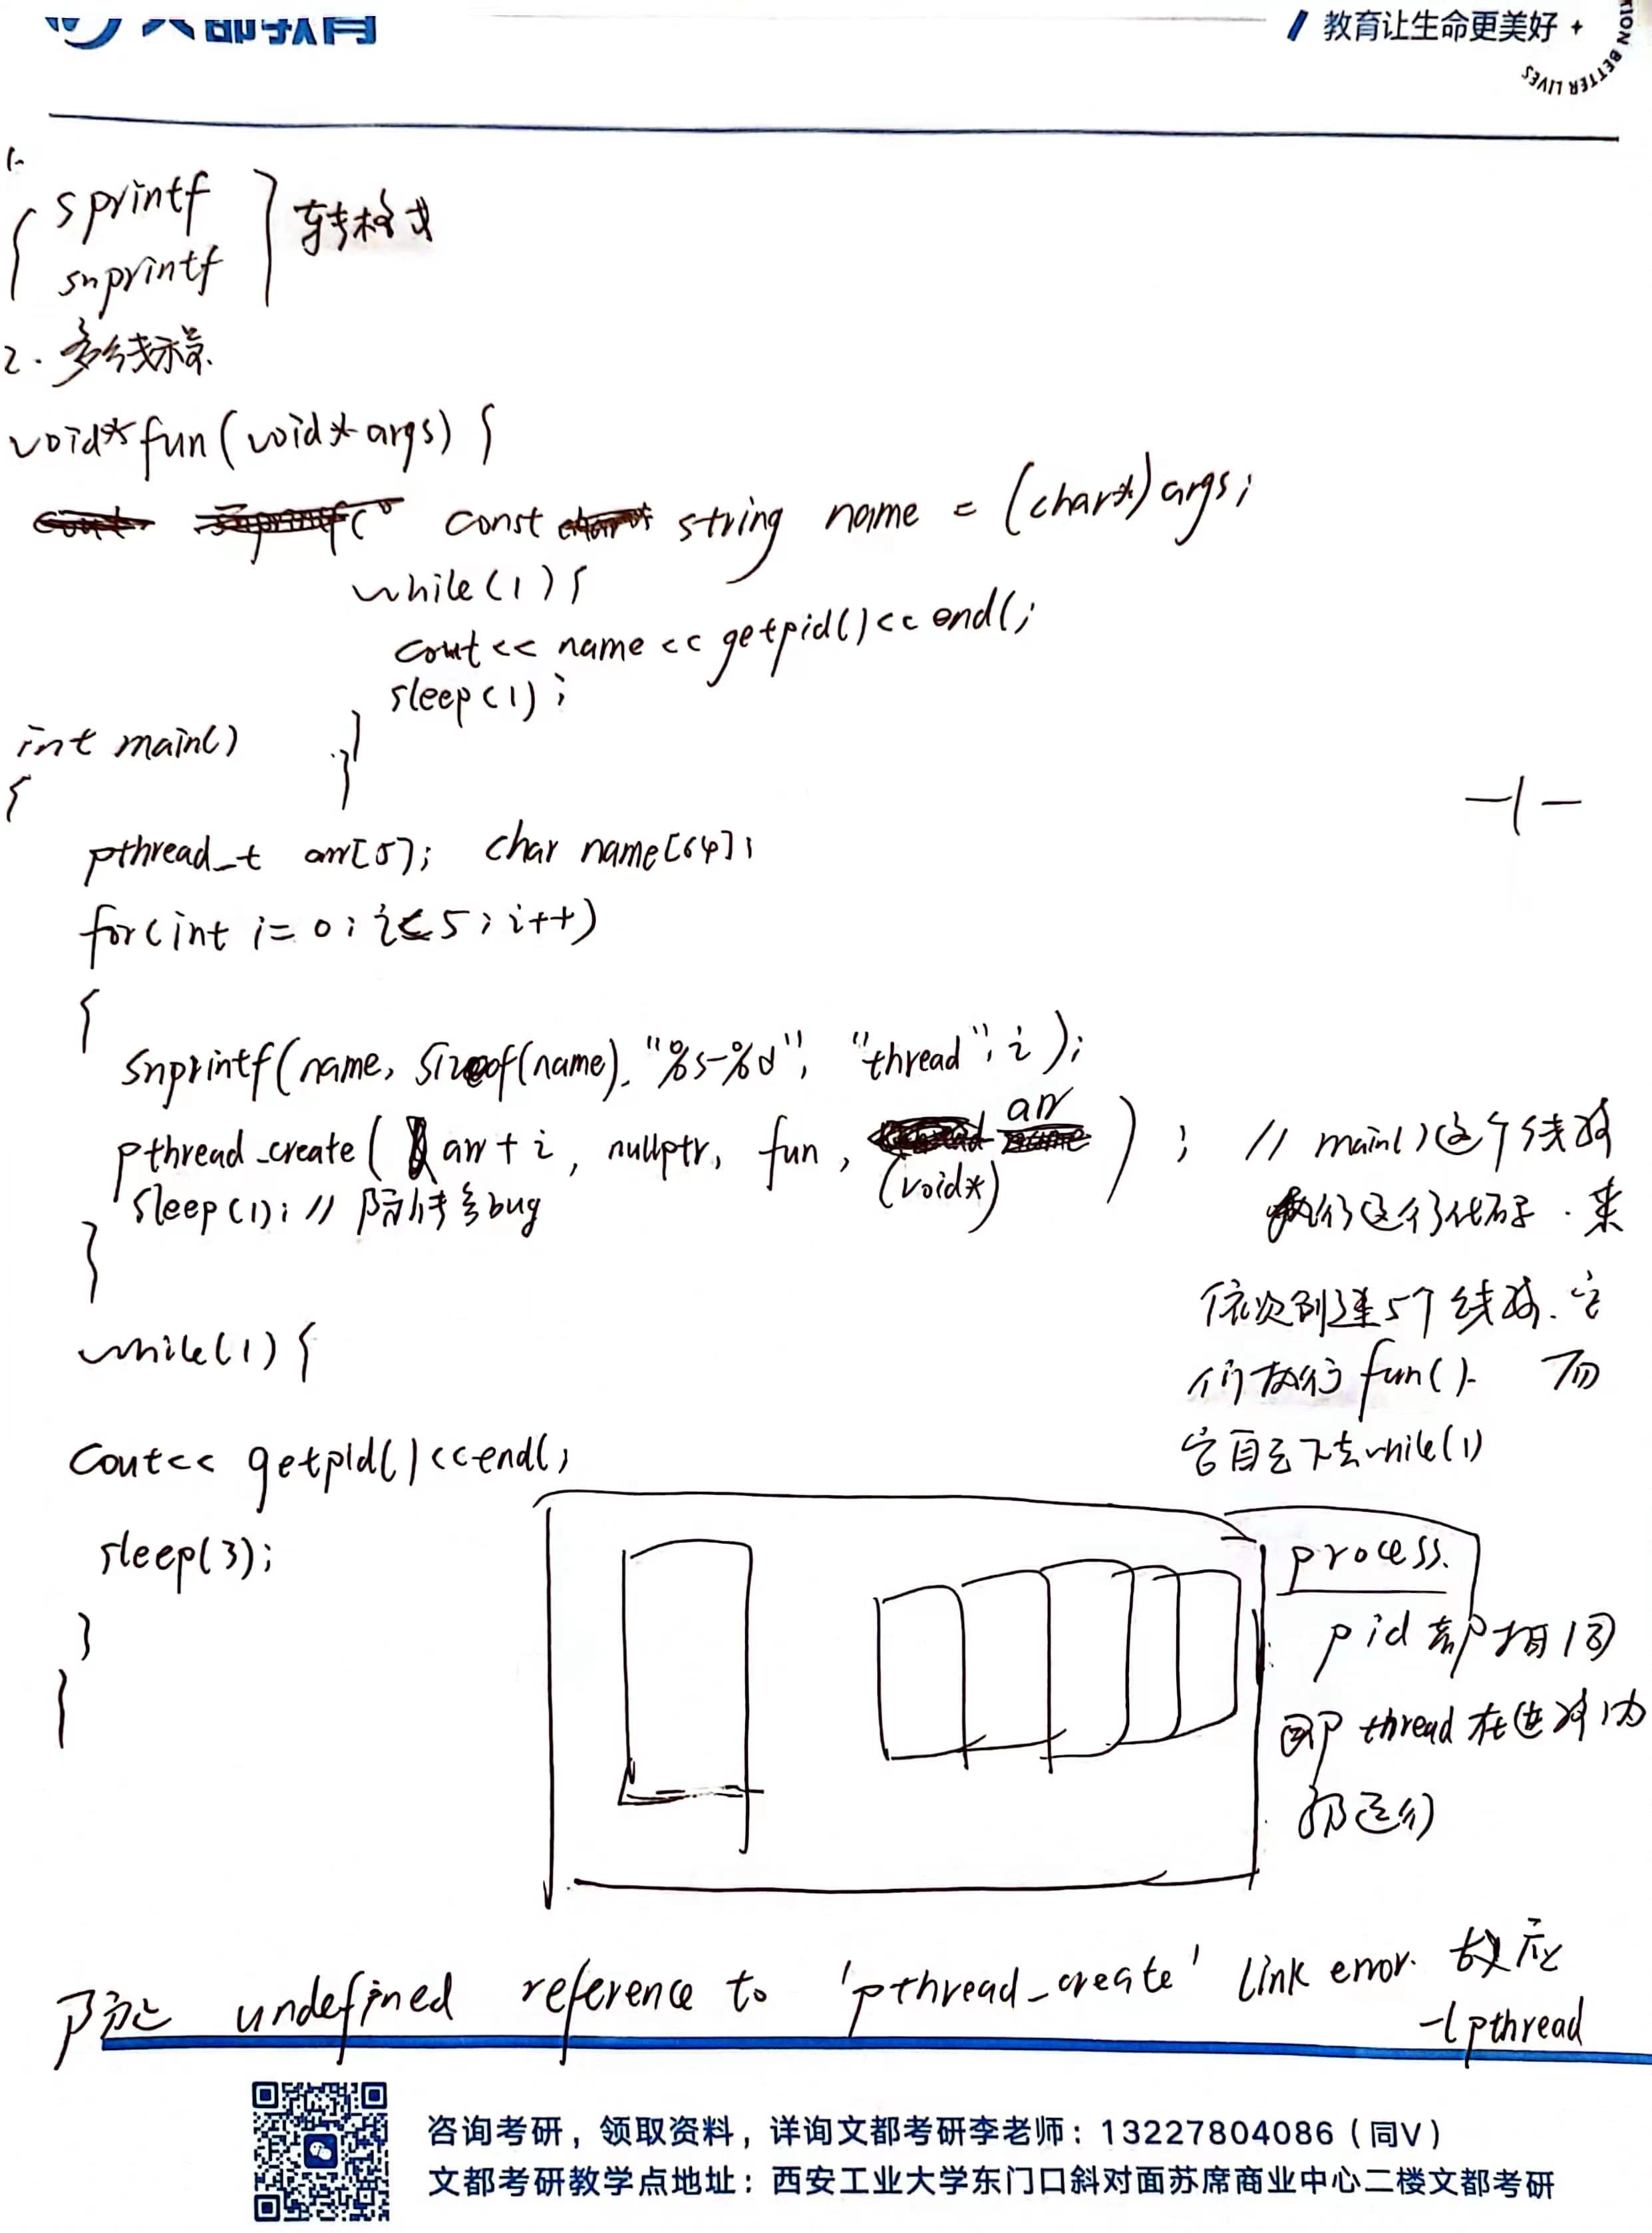 文都教育
教育让生命更美好
ION BETTER LIVES
1.
sprintf
snprintf
转格式
2. 多线程.
void* fun(void* args) {
const string name = (char*) args;
while(1) {
cout << name << getpid() << endl;
sleep(1);
}
}
int main()
{
pthread_t arr[5]; char name[64];
for(int i = 0; i < 5; i++)
{
snprintf(name, sizeof(name), "%s-%d", "thread", i);
pthread_create( arr + i, nullptr, fun, (void*) arr ); // main()这个线程
sleep(1); // 防传参bug
执行这行代码. 来
}
依次创建5个线程. 它
while(1) {
们执行 fun(). 而
它自己下去while(1)
cout<< getpid() <<endl;
sleep(3);
}
}
process.
pid 都相同
即 thread 在进程内
部运行
防止 undefined reference to 'pthread_create' link error. 故应
-lpthread
咨询考研，领取资料，详询文都考研李老师：13227804086（同V）
文都考研教学点地址：西安工业大学东门口斜对面苏席商业中心二楼文都考研